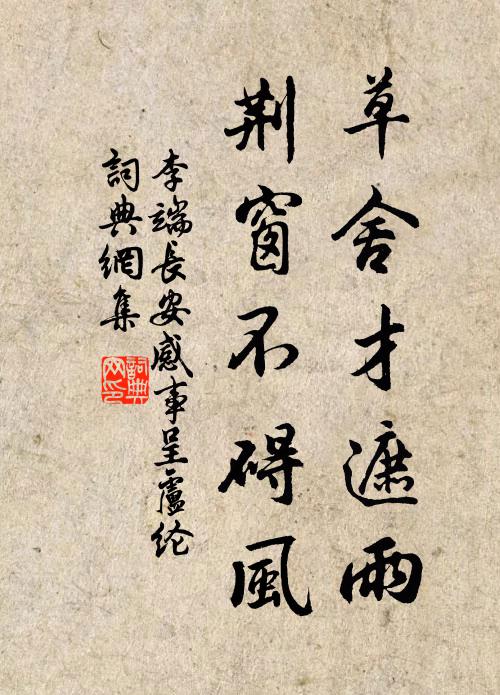 草舍才遮雨
荆窗不碍風
李端長安感事呈盧纶
詞典網集
詞典
网印